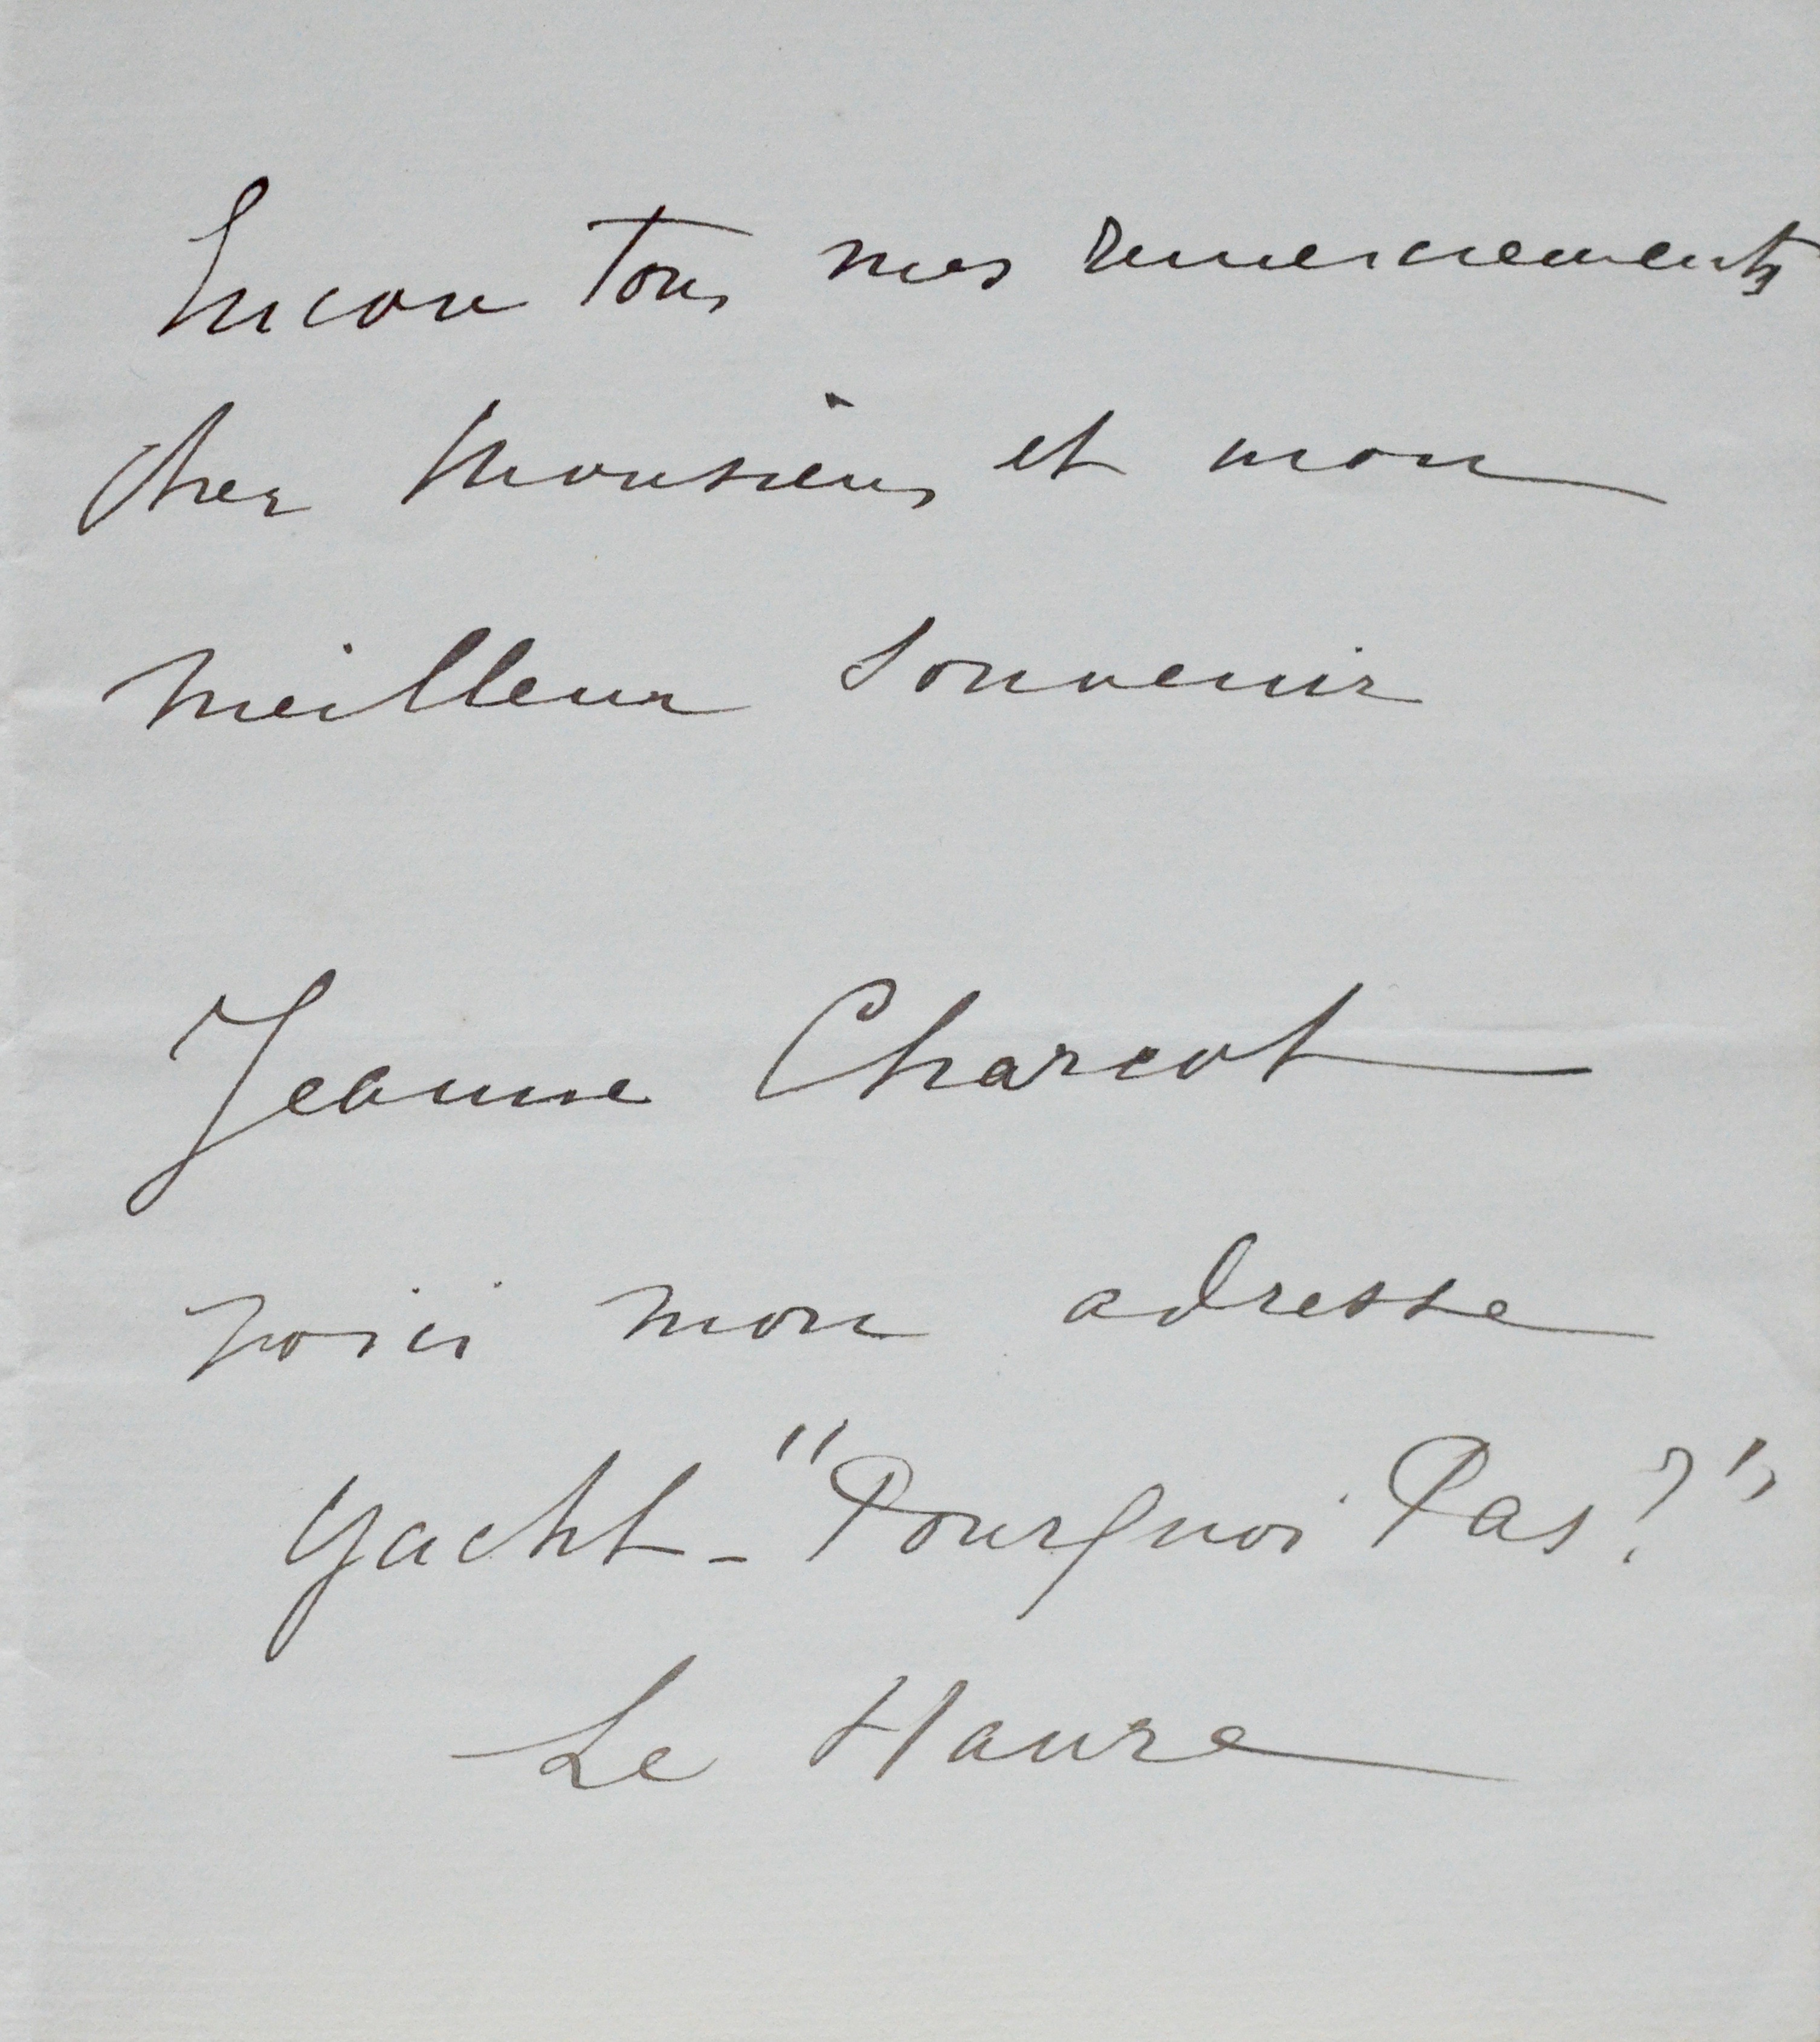 Encore tous mes remerciements
cher Monsieur et mon
meilleur souvenir
Jeanne Charcot
voici mon adresse
Yacht - "Pourquoi Pas?"
Le Havre